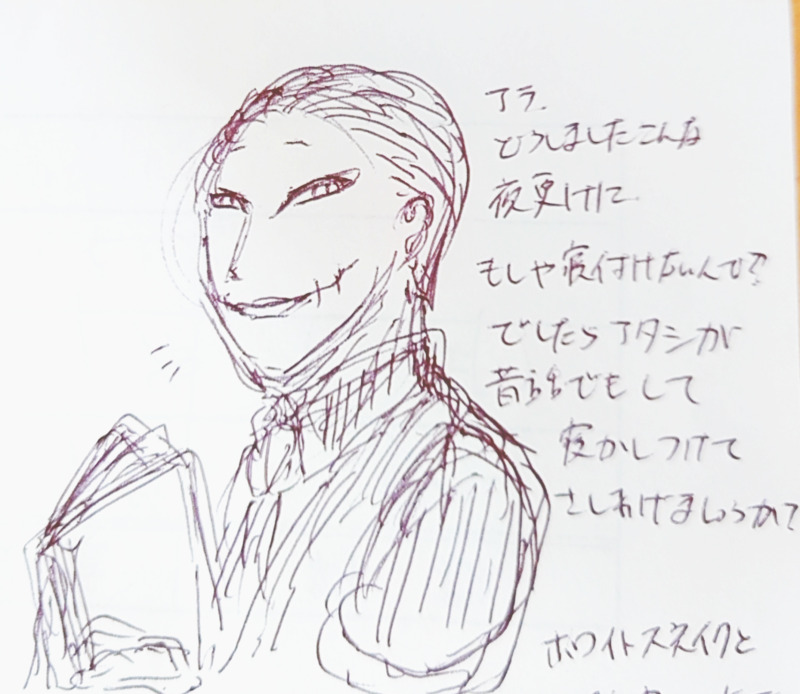 アラ.
どうしましたこんな
夜更けに
もしや寝付けないんで?
でしたらアタシが
昔話でもして
寝かしつけて
さしあげましょうか?
ホワイトスネイクと